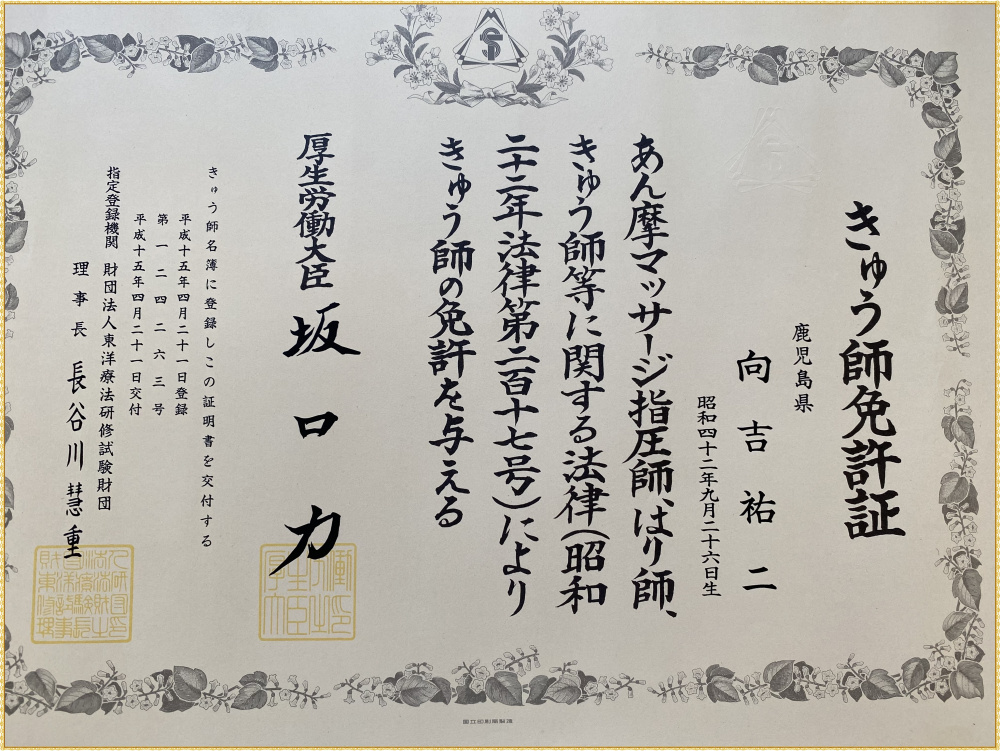 きゅう師免許証
鹿児島県
向吉祐二
昭和四十二年九月二十六日生
あん摩マッサージ指圧師、はり師、
きゅう師等に関する法律(昭和
二十二年法律第二百十七号)により
きゅう師の免許を与える
厚生労働大臣 坂口力
きゅう師名簿に登録しこの証明書を交付する
平成十五年四月二十一日登録
第一二四二六三号
平成十五年四月二十一日交付
指定登録機関 財団法人東洋療法研修試験財団
理事長 長谷川慧重
国立印刷局製造